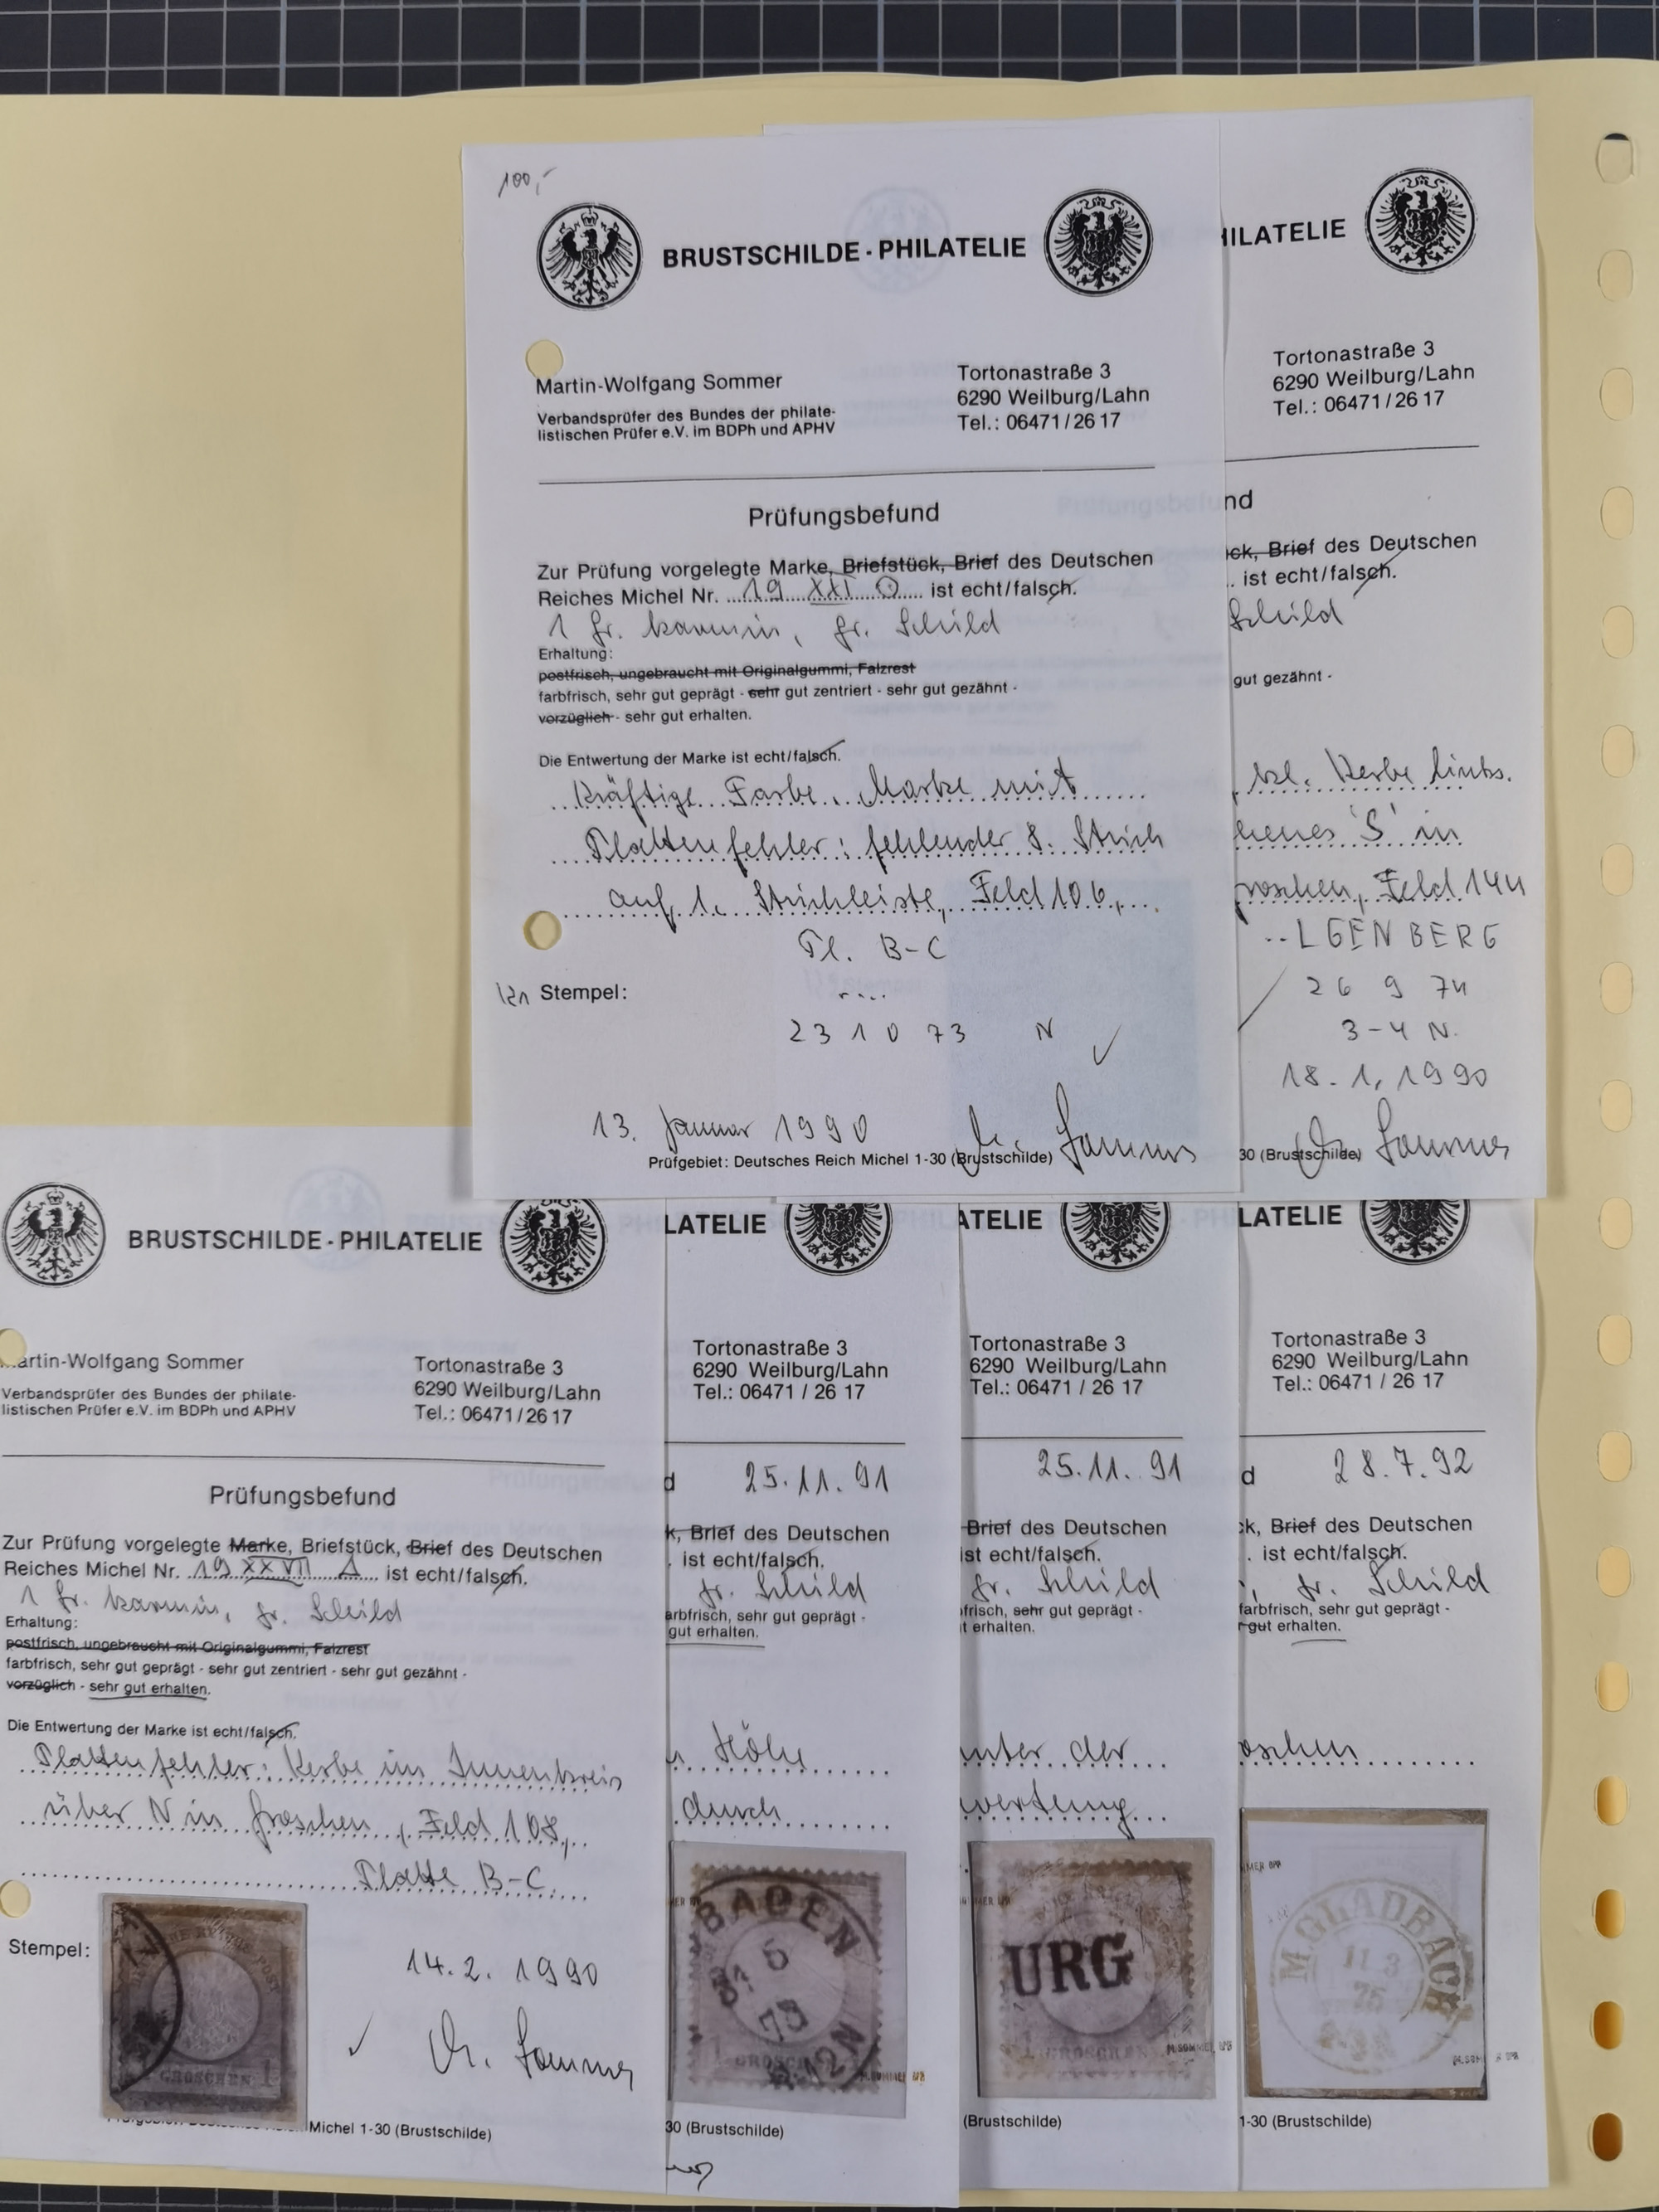 100,-
BRUSTSCHILDE - PHILATELIE
Martin-Wolfgang Sommer
Verbandsprüfer des Bundes der philate-
listischen Prüfer e.V. im BDPh und APHV
Tortonastraße 3
6290 Weilburg/Lahn
Tel.: 06471/26 17
Prüfungsbefund
Zur Prüfung vorgelegte Marke, Briefstück, Brief des Deutschen
Reiches Michel Nr. 19 XXI ist echt/falsch.
1 Gr. karmin, gr. Schild
Erhaltung:
postfrisch, ungebraucht mit Originalgummi, Falzrest
farbfrisch, sehr gut geprägt - sehr gut zentriert - sehr gut gezähnt -
vorzüglich - sehr gut erhalten.
Die Entwertung der Marke ist echt/falsch.
Kräftige Farbe. Marke mit
Plattenfehler: fehlender 8. Strich
auf 1. Strichleiste, Feld 106,
Pl. B-C
Stempel:
23 10 73 N
13. Januar 1990
Prüfgebiet: Deutsches Reich Michel 1-30 (Brustschilde)
HILATELIE
Tortonastraße 3
6290 Weilburg/Lahn
Tel.: 06471/26 17
nd
ck, Brief des Deutschen
. ist echt/falsch.
Schild
gut gezähnt -
kl. Kerbe links.
henes 'S' in
roschen, Feld 144
..LGENBERG
26 9 74
3-4 N.
18.1.1990
30 (Brustschilde)
BRUSTSCHILDE - PHILATELIE
artin-Wolfgang Sommer
Verbandsprüfer des Bundes der philate-
listischen Prüfer e.V. im BDPh und APHV
Tortonastraße 3
6290 Weilburg/Lahn
Tel.: 06471/26 17
Prüfungsbefund
Zur Prüfung vorgelegte Marke, Briefstück, Brief des Deutschen
Reiches Michel Nr. 19 XXVII ist echt/falsch.
1 Gr. karmin, gr. Schild
Erhaltung:
postfrisch, ungebraucht mit Originalgummi, Falzrest
farbfrisch, sehr gut geprägt - sehr gut zentriert - sehr gut gezähnt -
vorzüglich - sehr gut erhalten.
Die Entwertung der Marke ist echt/falsch.
Plattenfehler: Kerbe im Innenkreis
über N in Groschen, Feld 108,
Platte B-C
Stempel:
GROSCHEN 1
14.2.1990
Michel 1-30 (Brustschilde)
LATELIE
Tortonastraße 3
6290 Weilburg/Lahn
Tel.: 06471 / 26 17
d 25.11.91
k, Brief des Deutschen
. ist echt/falsch.
gr. Schild
arbfrisch, sehr gut geprägt -
gut erhalten.
Höhe
durch
BADEN
5
73
30 (Brustschilde)
ATELIE
Tortonastraße 3
6290 Weilburg/Lahn
Tel.: 06471 / 26 17
25.11.91
Brief des Deutschen
ist echt/falsch.
gr. Schild
frisch, sehr gut geprägt -
t erhalten.
unter der
wertung
URG
GROSCHEN
M.SOMMER BPP
(Brustschilde)
LATELIE
Tortonastraße 3
6290 Weilburg/Lahn
Tel.: 06471 / 26 17
d 28.7.92
ck, Brief des Deutschen
. ist echt/falsch.
gr. Schild
farbfrisch, sehr gut geprägt -
gut erhalten.
oschen
M.GLADBACH
11 3
75
1-30 (Brustschilde)